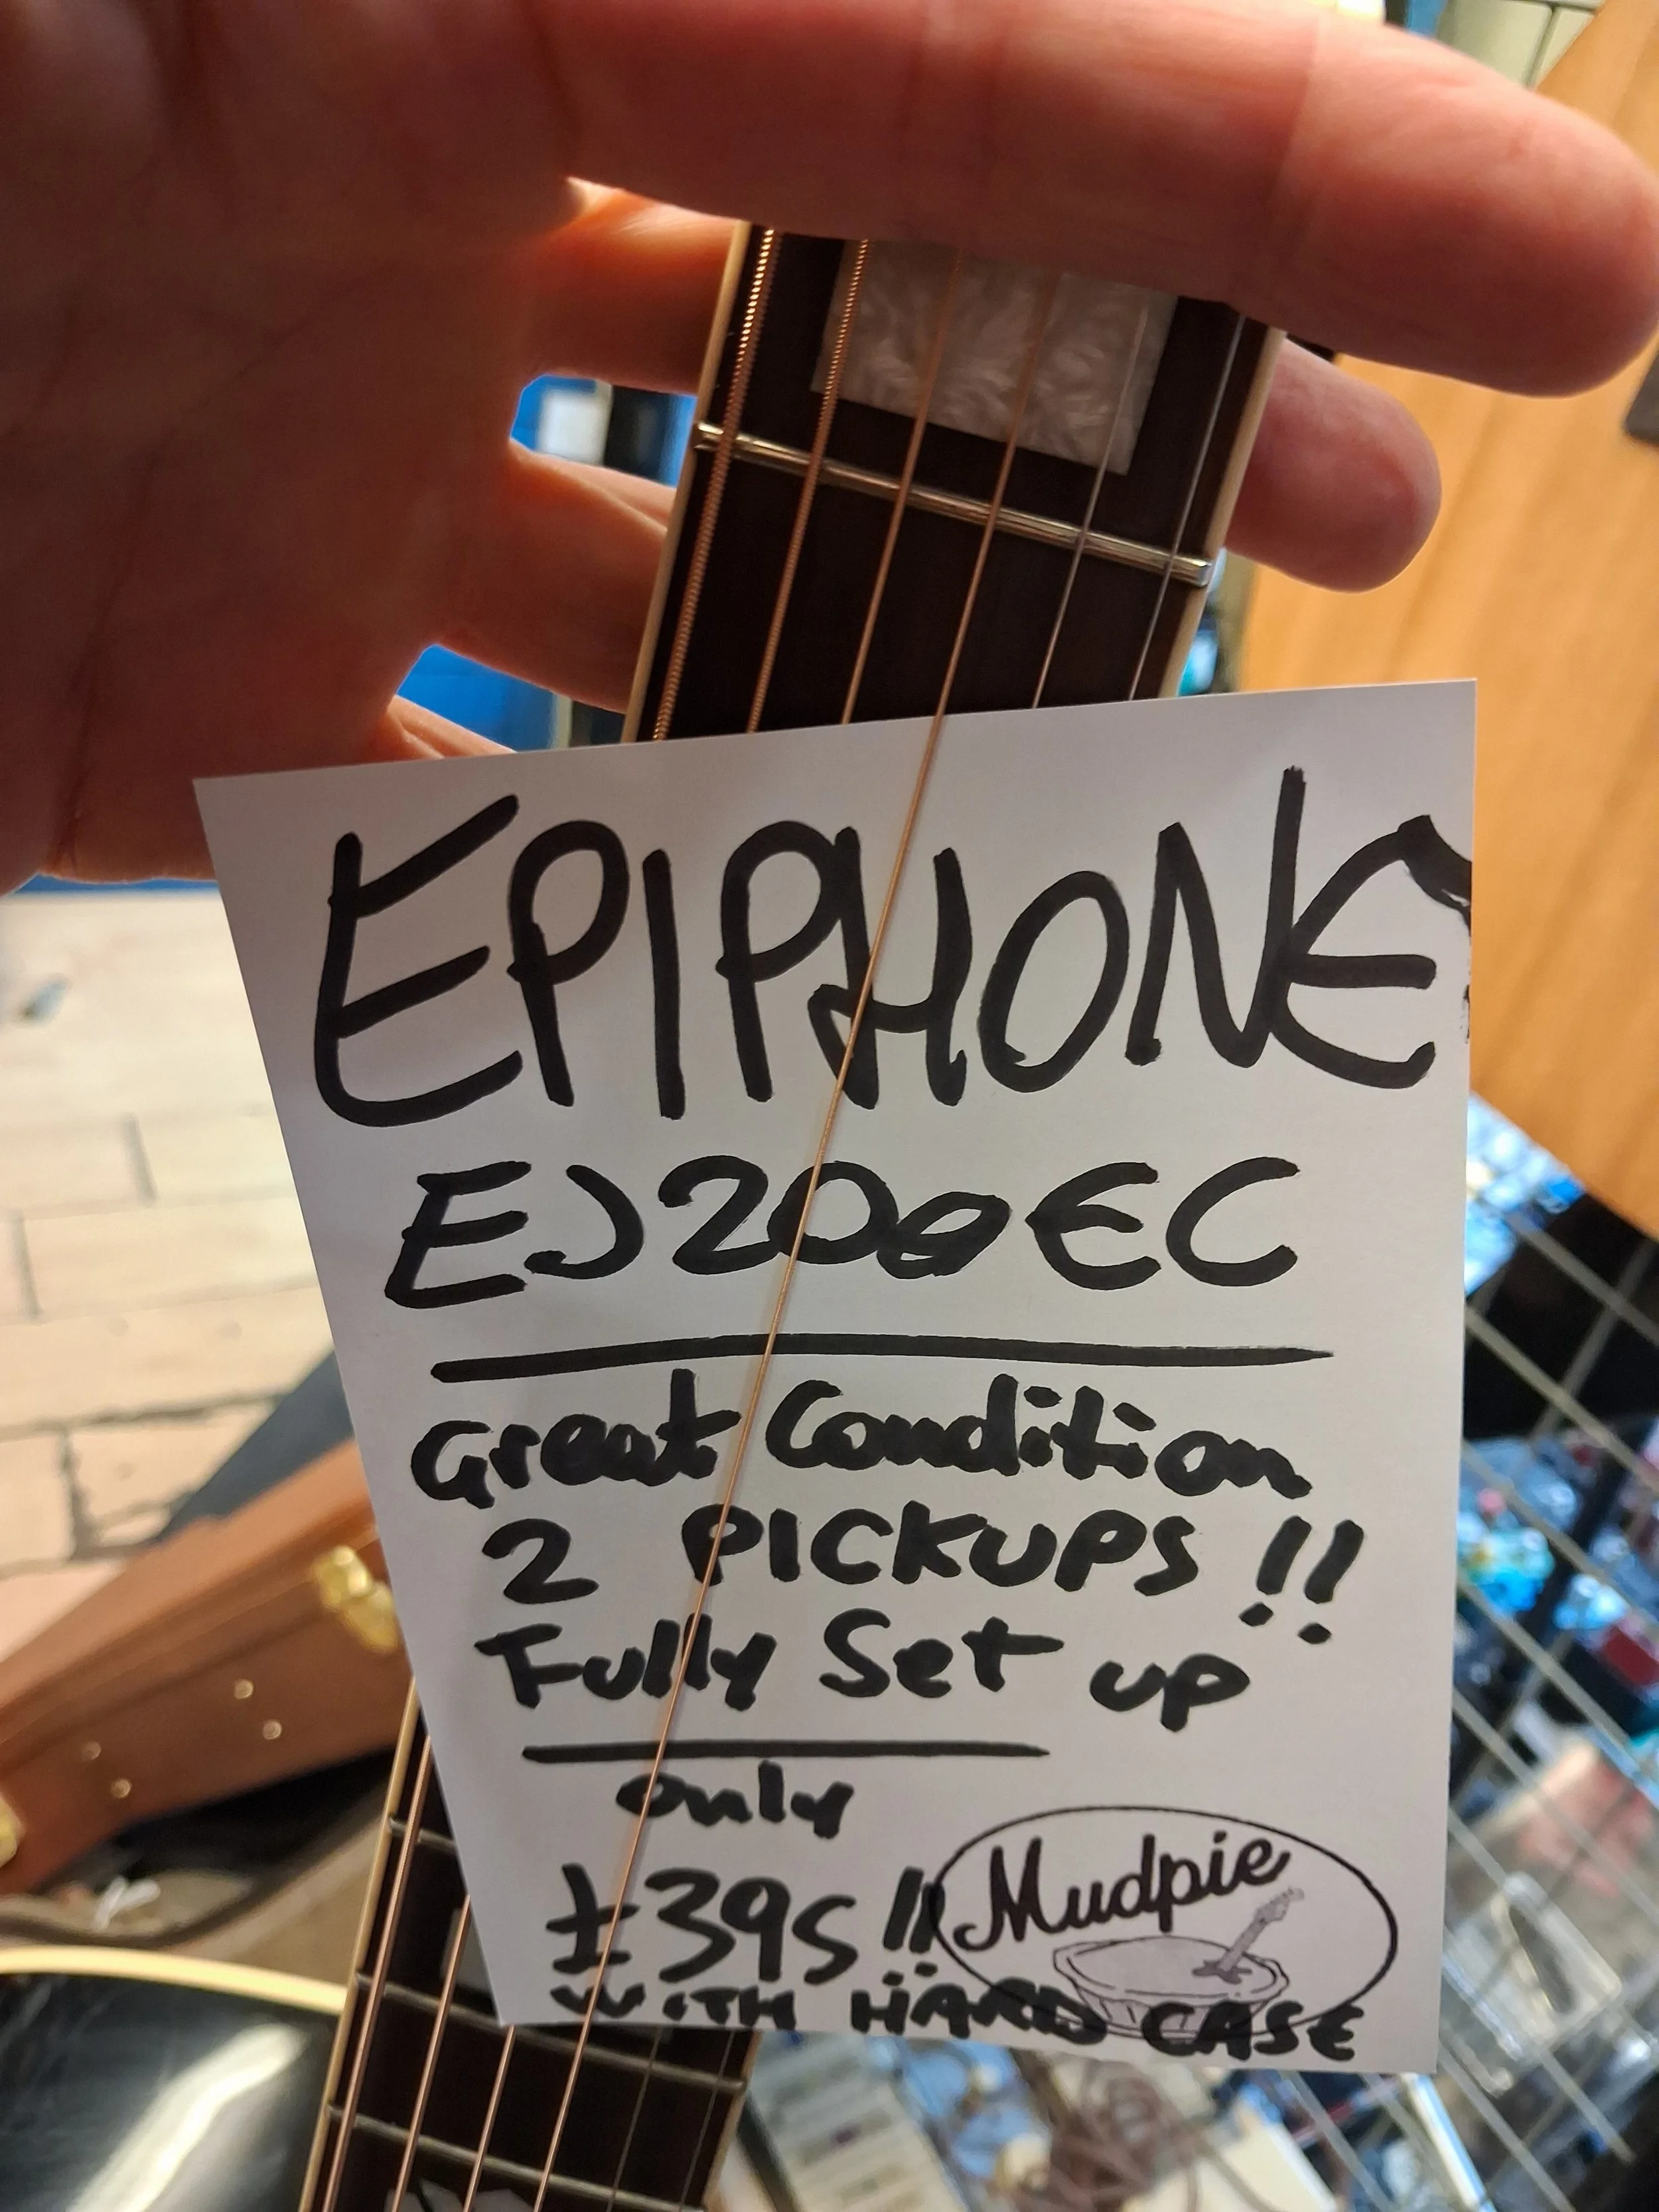 EPIPHONE
EJ200EC
Great Condition
2 PICKUPS !!
Fully Set up
only
£395 !!
Mudpie
WITH HARD CASE